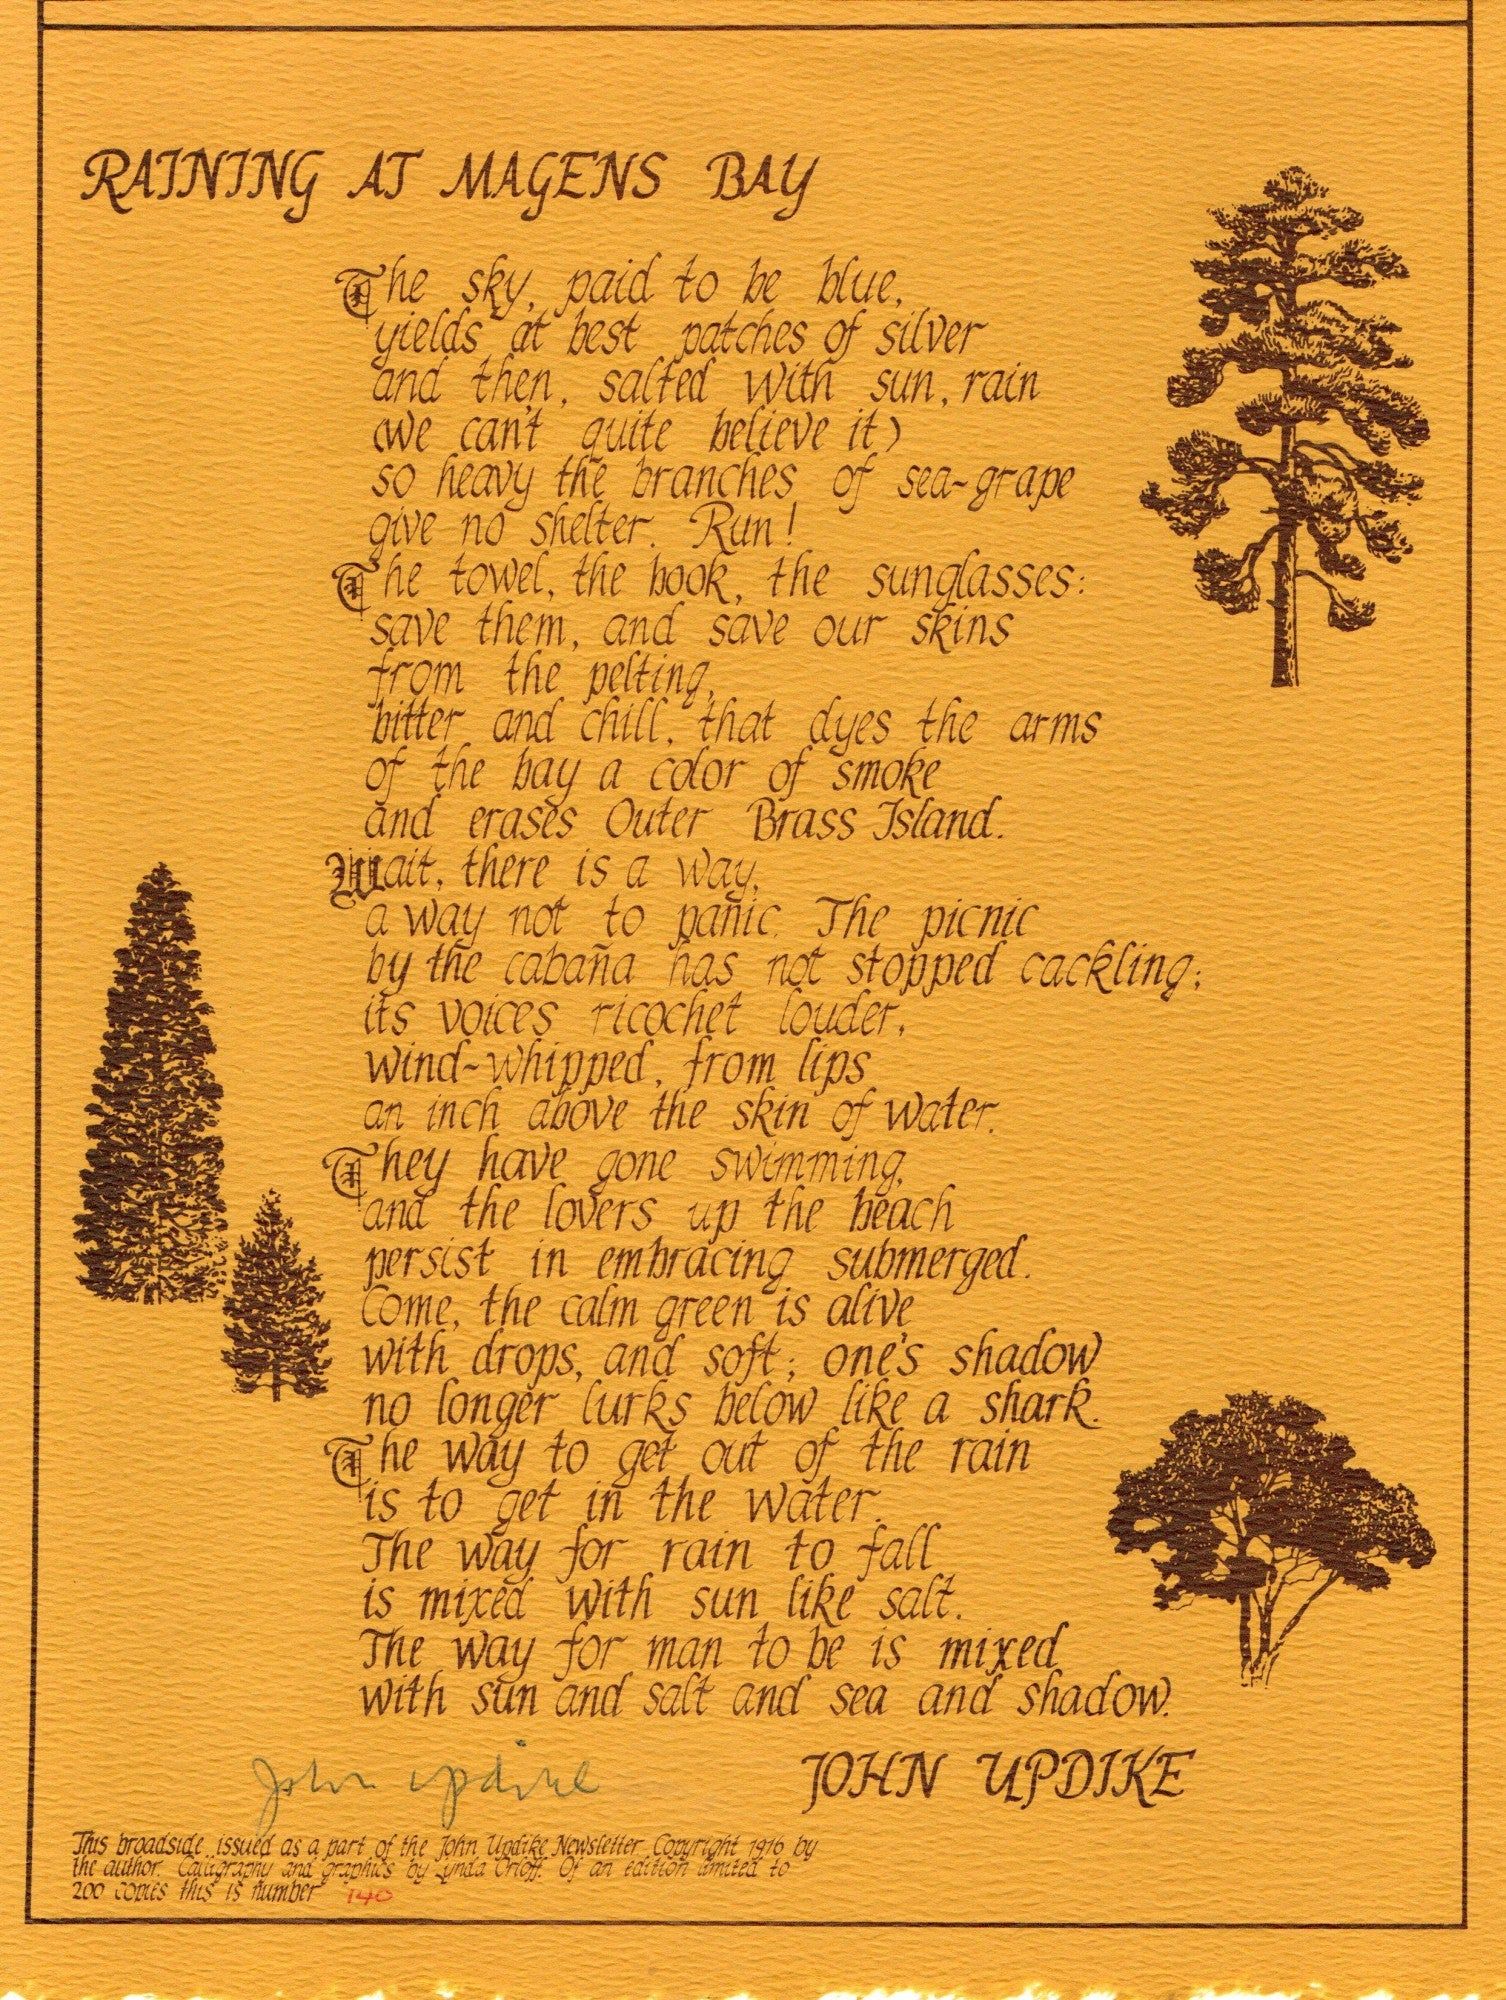 RAINING AT MAGENS BAY
The sky, paid to be blue,
yields at best patches of silver
and then, salted with sun, rain
(we can't quite believe it)
so heavy the branches of sea-grape
give no shelter. Run!
The towel, the book, the sunglasses:
save them, and save our skins
from the pelting,
bitter and chill, that dyes the arms
of the bay a color of smoke
and erases Outer Brass Island.
Wait, there is a way,
a way not to panic. The picnic
by the cabaña has not stopped cackling;
its voices ricochet louder,
wind-whipped, from lips
an inch above the skin of water.
They have gone swimming,
and the lovers up the beach
persist in embracing submerged.
Come, the calm green is alive
with drops, and soft; one's shadow
no longer lurks below like a shark.
The way to get out of the rain
is to get in the water.
The way for rain to fall
is mixed with sun like salt.
The way for man to be is mixed
with sun and salt and sea and shadow.
John Updike
JOHN UPDIKE
This broadside issued as a part of the John Updike Newsletter Copyright 1976 by
the author. Calligraphy and graphics by Lynda Orloff. Of an edition limited to
200 copies this is number 140